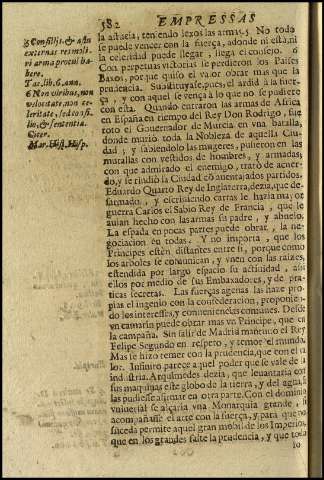 582 EMPRESSAS
5 Consilijs, & astu
externas res moli-
ri arma procul ha-
bere.
Tac. lib. 6. ann.
6 Non viribus, non
velocitate, non ce-
leritate, sed consi-
lio, & sententia.
Cicer.
Mar. Hist. Hisp.
la astucia, teniendo lexos las armas. 5 No toda
se puede vencer con la fuerça, adonde ni esta, ni
la celeridad puede llegar, llega el consejo. 6
Con perpetuas victorias se perdieron los Paises
Baxos, por que quiso el valor obrar mas que la
prudencia. Substituyase, pues, el ardid a la fuer-
ça, y con aquel se vença lo que no se pudiere
con esta. Quando entraron las armas de Africa
en España en tiempo del Rey Don Rodrigo, fue
roto el Governador de Murcia en vna batalla,
donde murio toda la Nobleza de aquella Ciu-
dad; y sabiendolo las mugeres, pusieron en las
murallas con vestidos de hombres, y armadas,
con que admirado el enemigo, tratò de acuer-
do, y se rindiò la Ciudad cõ auentajados partidos.
Eduardo Quarto Rey de Inglaterra, dezia, que de-
sarmado, y escriuiendo cartas le hazia mayor
guerra Carlos el Sabio Rey de Francia, que le
auian hecho con las armas su padre, y abuelo.
La espada en pocas partes puede obrar, la ne-
gociacion en todas. Y no importa, que los
Principes estèn distantes entre si, porque como
los arboles se comunican, y vnen con las raizes,
estendida por largo espacio su actiuidad, assi
ellos por medio de sus Embaxadores, y de pra-
ticas secretas. Las fuerças agenas las haze pro-
pias el ingenio con la confederacion, proponien-
do los interesses, y conueniencias comunes. Desde
vn camarin puede obrar mas vn Principe, que en
la campaña. Sin salir de Madrid mantuuo el Rey
Felipe Segundo en respeto, y temor el mundo.
Mas se hizo temer con la prudencia, que con el va-
lor. Infinito parece aquel poder que se vale de la
industria. Arquimedes dezia, que leuantaria con
sus maquinas este globo de la tierra, y del agua, si
las pudiesse afirmar en otra parte. Con el dominio
vniuersal se alçaria vna Monarquia grande, si
acompañasse el arte con la fuerça, y para que no
suceda permite aquel gran mobil de los Imperios,
que en los grandes falte la prudencia, y que todo
lo